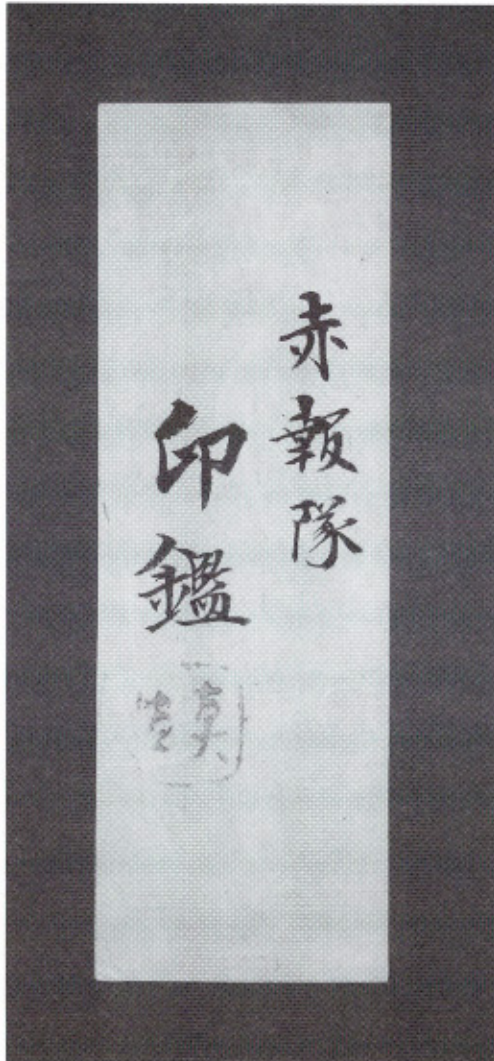 赤報隊
印鑑